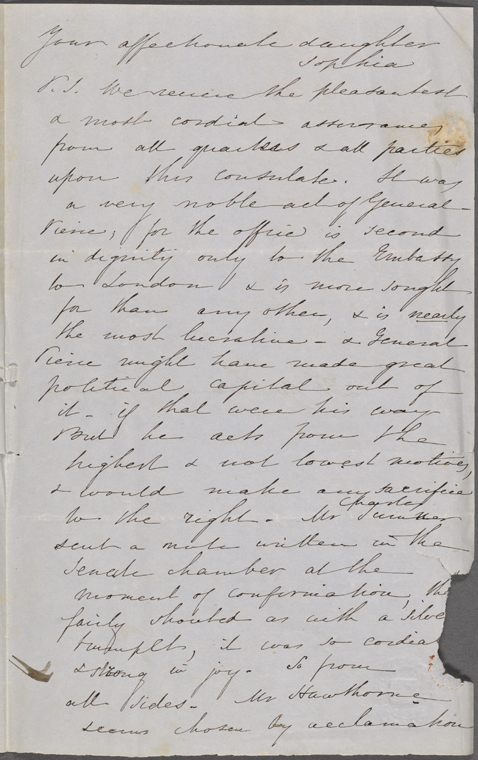 Your affectionate daughter
Sophia
P.S. We receive the pleasantest
& most cordial assurances
from all quarters & all parties
upon this consulate. It was
a very noble act of General
Pierce; for the office is second
in dignity only to the Embassy
to London & is more sought
for than any other, & is nearly
the most lucrative - & General
Pierce might have made great
political capital out of
it - if that were his way
But he acts from the
highest & not lowest motives,
& would make any sacrifice
to the right. Mr Charles Sumner
sent a note written in the
Senate chamber at the
moment of confirmation, the
fairly shouted as with a silve
trumpets, it was so cordia
& strong in joy. So from
all sides - Mr Hawthorne
seems chosen by acclamation